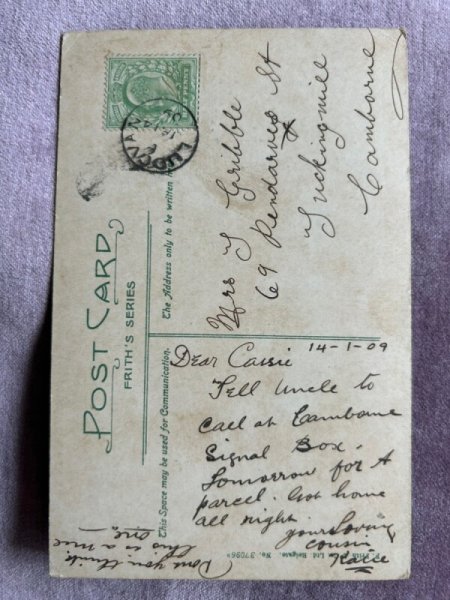 POST CARD
FRITH'S SERIES
This Space may be used for Communication.
The Address only to be written
PENNY
LUDGVAN
JA
Mrs J Gribble
69 Pendarves St
Tuckingmill
Camborne
14-1-09
Dear Cassie
Tell Uncle to
call at Camborne
Signal Box.
Tomorrow for A
parcel. Got home
all right.
yours Loving
cousin
Katie
Dont you think
this is a nice
one
Ltd Reigate. No. 37096